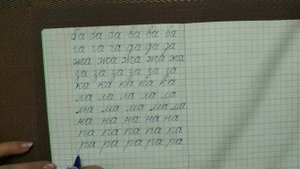 ба ба ба ва ва ва
га га га да да да
жа жа жа жа жа
за за за за за за
ка ка ка ка ка
ла ла ла ла ла
ма ма ма ма ма
на на на на на
па па па па па
ра ра ра ра ра